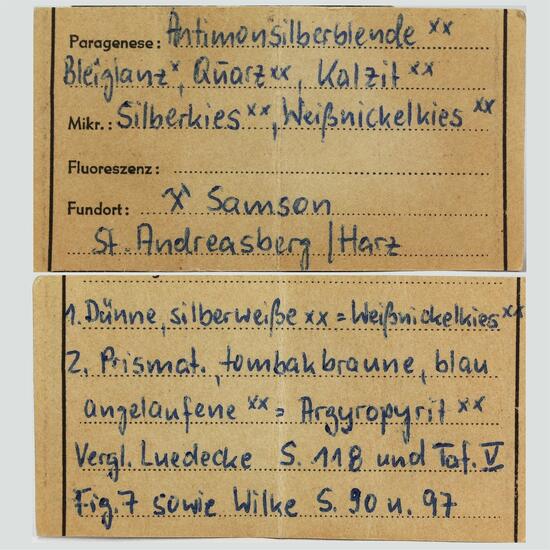 Paragenese: Antimonsilberblende xx
Bleiglanz x, Quarz xx, Kalzit xx
Mikr.: Silberkies xx, Weißnickelkies xx
Fluoreszenz:
Fundort: Samson
St. Andreasberg / Harz
1. Dünne, silberweiße xx = Weißnickelkies xx
2. Prismat., tombakbraune, blau
angelaufene xx = Argyropyrit xx
Vergl. Luedecke S. 118 und Taf. V
Fig. 7 sowie Wilke S. 90 u. 97